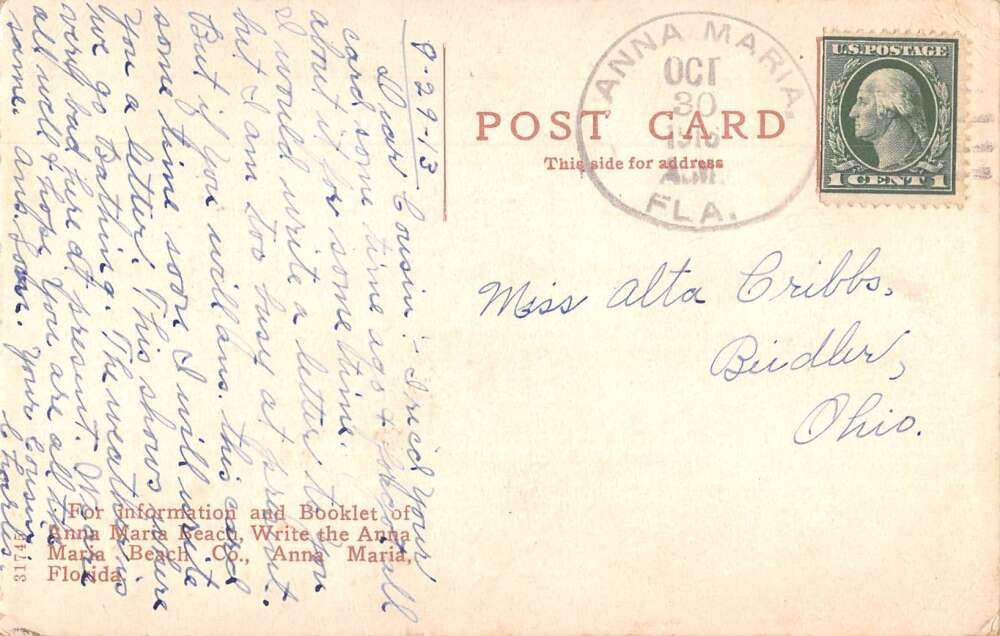 POST CARD
This side for address
ANNA MARIA,
OCT
30
FLA.
U.S. POSTAGE
1 CENT 1
Miss Alta Cribbs,
Beidler,
Ohio.
Dear Cousin:- I rec'd your
card some time ago & forgot all
about it for some time.
I would write a letter to you
but I am too busy at present.
But if you will ans. this card
some time soon I will write
you a letter. This shows where
we go Bathing. The weather is
very bad here at present. We are
all well & hope you are all the
same. Ans. Soon. Your Cousin
Charles.
For information and Booklet of
Anna Maria Beach, Write the Anna
Maria Beach Co., Anna Maria,
Florida.